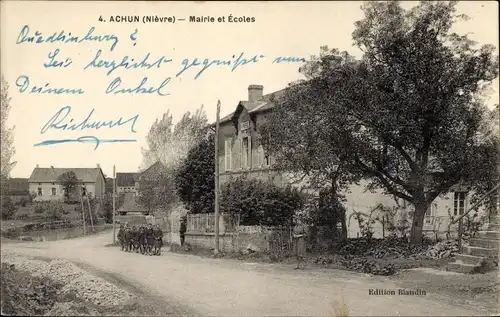 4. ACHUN (Nièvre) — Mairie et Écoles
Quedlinburg?
Sei herzlichst gegrüsst von
Deinem Onkel
Richard
Edition Blandin